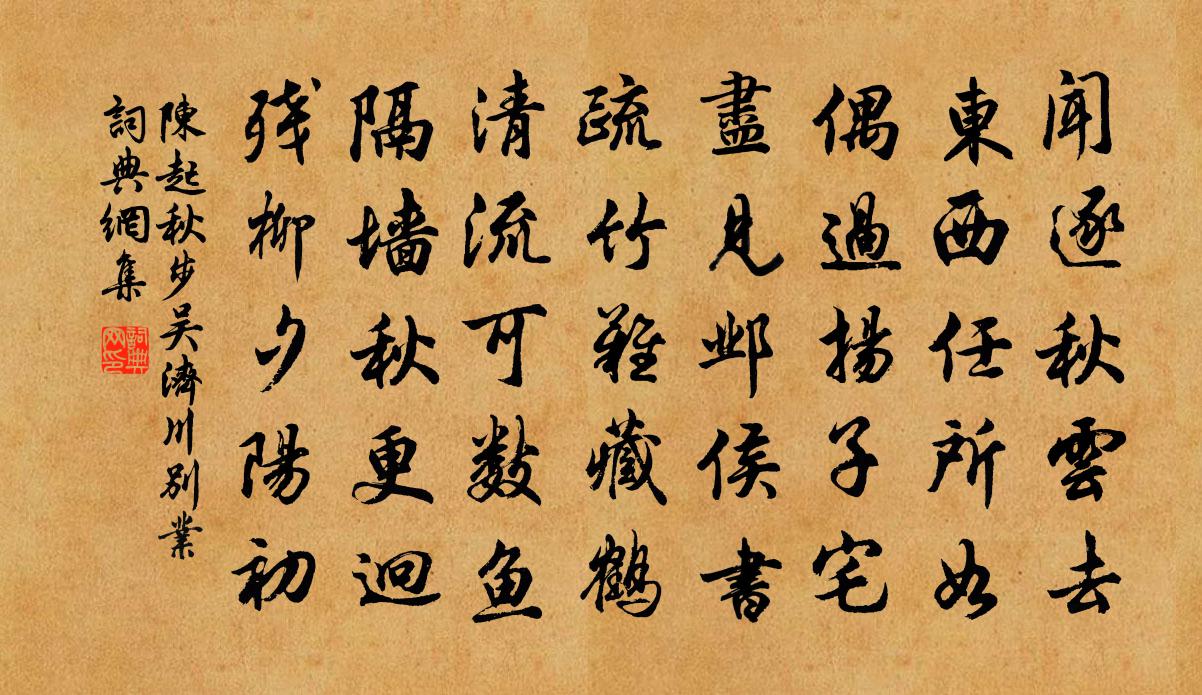 聞逐秋雲去
東西任所如
偶過揚子宅
盡見邺侯書
疏竹難藏鶴
清流可數鱼
隔墙秋更迴
残柳夕陽初
陳起秋步吴濟川别業
詞典網集
詞典
网印